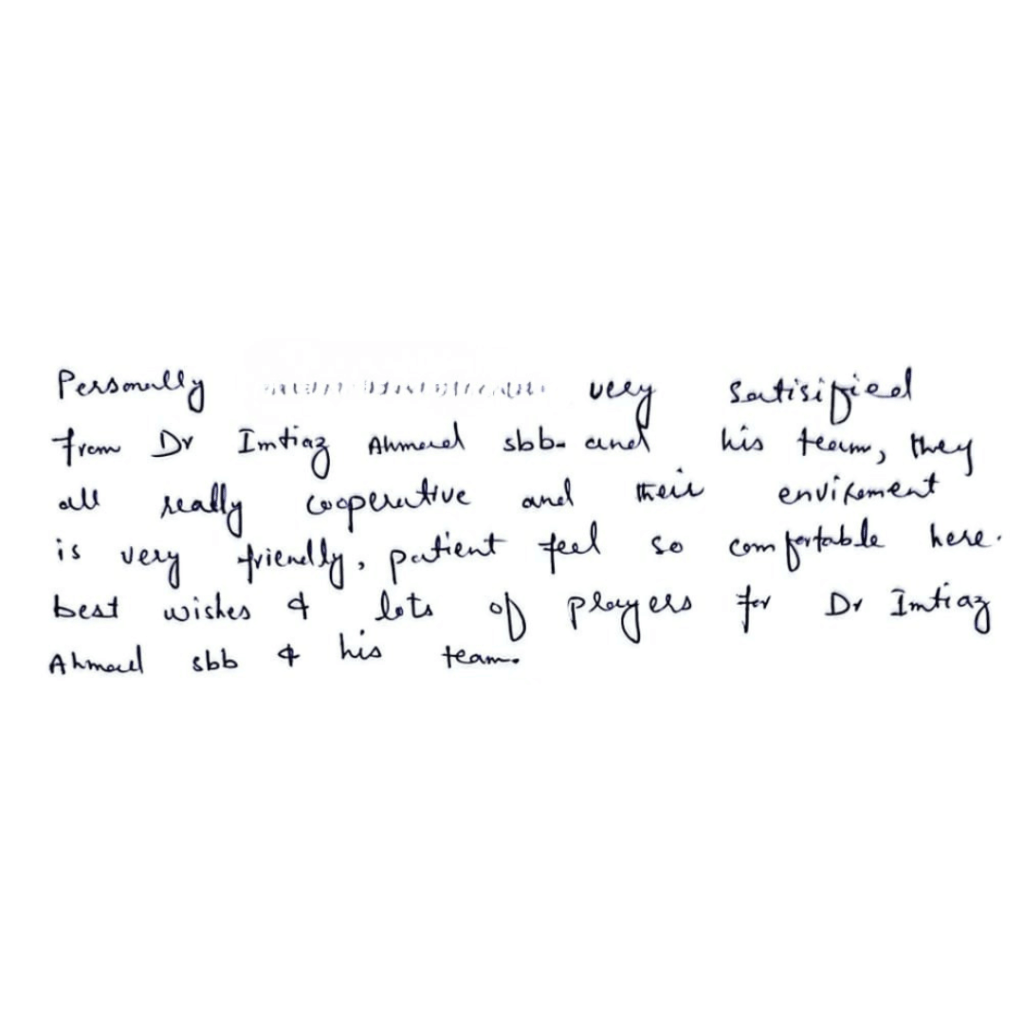 Personally very satisified
from Dr Imtiaz Ahmed sbb- and his team, they
all really cooperative and their envirement
is very friendly, patient feel so comfortable here.
best wishes & lots of players for Dr Imtiaz
Ahmed sbb & his team.